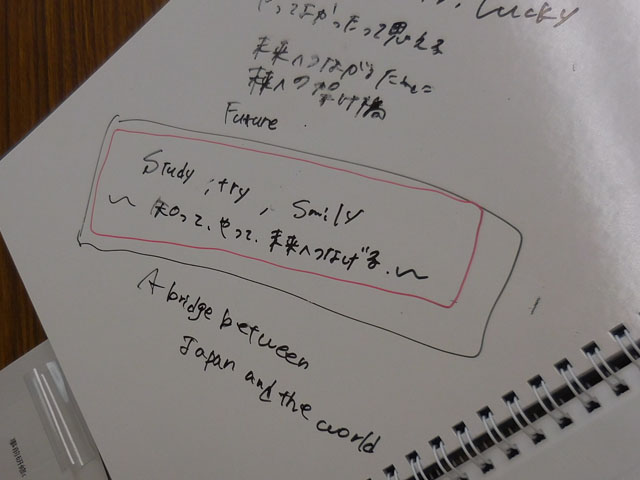 Lucky
やってよかったって思える
未来へつなげるために
未来への架け橋
Future
Study , try , Smily
〜 知って、やって、未来へつなげる 〜
A bridge between
Japan and the world